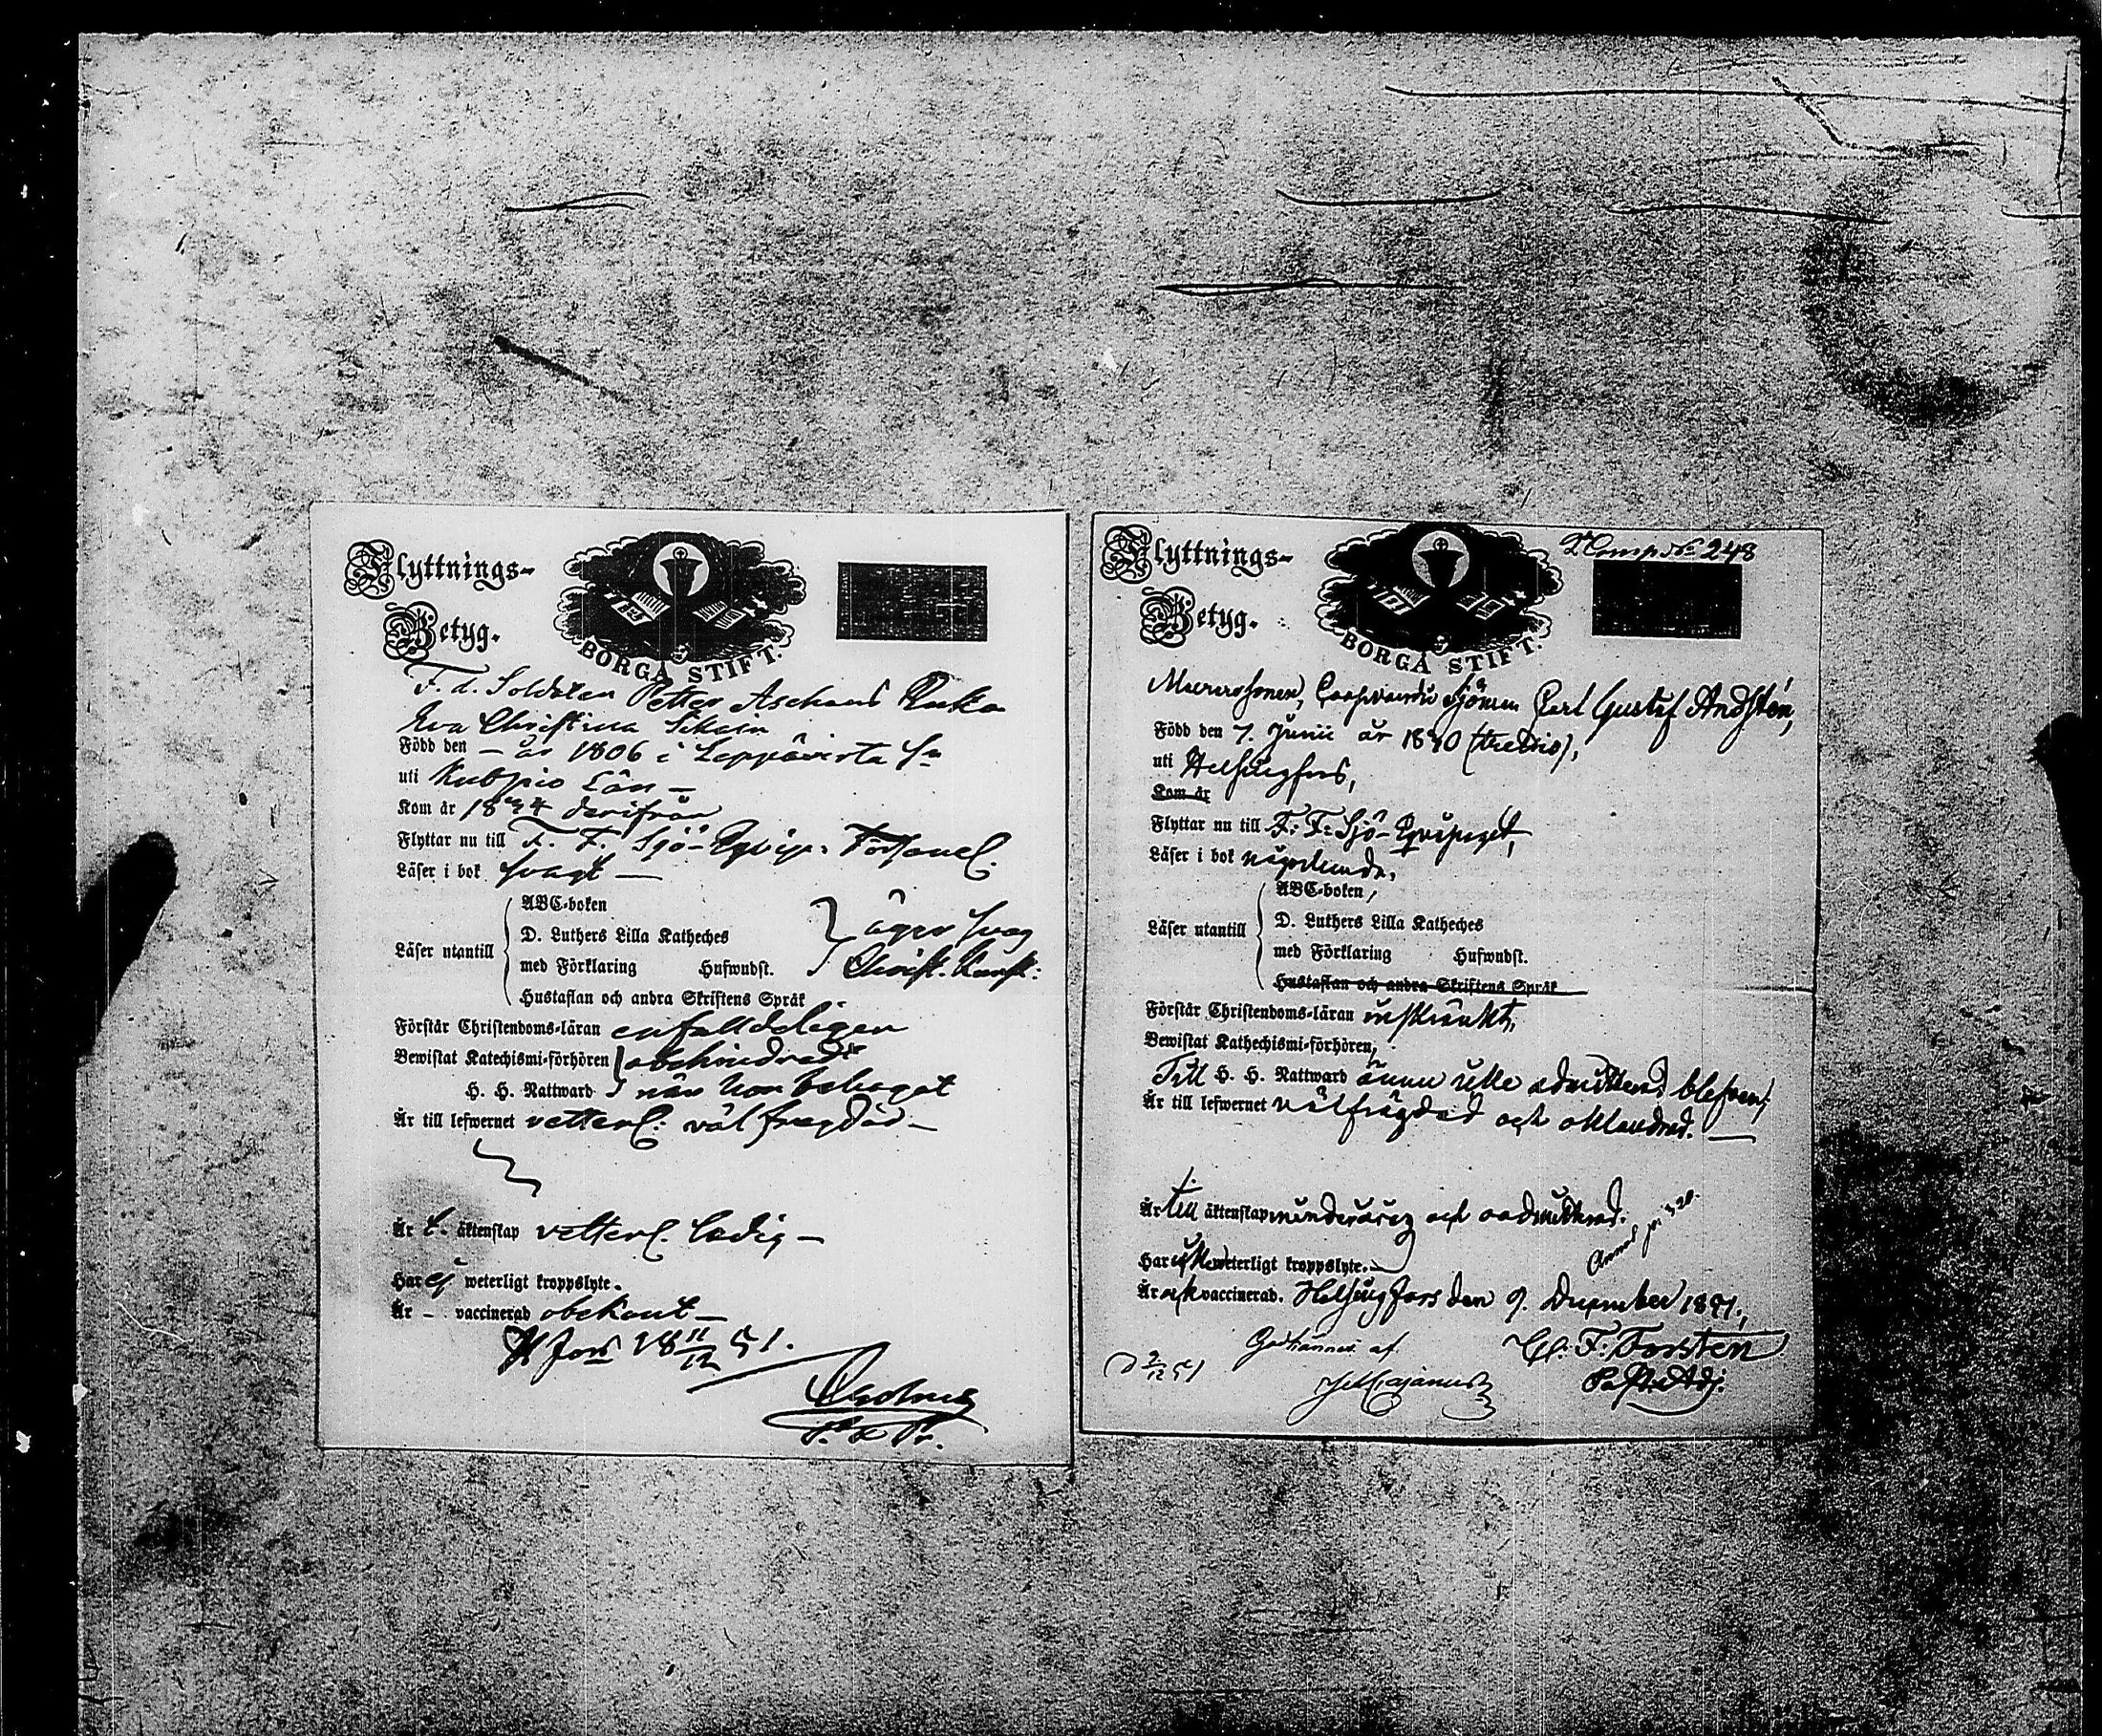 Flyttnings-
Betyg.
BORGÅ STIFT.
F. d. Soldaten Petter Aschans Enka
Eva Christina Sikain
Född den — år 1806 i Leppävirta Sn
uti Kuopio Län —
Kom år 1844 derifrån
Flyttar nu till F. F. Sjö-Eqvip.
Läser i bok svagt —
ABC-boken
Läser utantill D. Luthers Lilla Katheches äger svag
med Förklaring Hufwudst. Christ. Kunsk:
Hustaflan och andra Skriftens Språk
Förstår Christendoms-läran enfalldeligen
Bewistat Katechismi-förhören obehindradt
H. H. Nattward när hon behagat
Är till lefwernet vetterl: väl frägdad —
Är t. äktenskap vetterl. ledig —
Har ej weterligt kroppslyte.
Är — vaccinerad obekant —
H fors 18 11/12 51.
Flyttnings-
Betyg.
BORGÅ STIFT.
Comp. No 248
Sjöman Carl Gustaf Andstén,
Född den 7. Junii år 1840 (
uti Helsingfors,
Kom år
Flyttar nu till F. F. Sjö-Eqvipaget,
Läser i bok någorlunda.
ABC-boken,
Läser utantill D. Luthers Lilla Katheches
med Förklaring Hufwudst.
Hustaflan och andra Skriftens Språk
Förstår Christendoms-läran inskränkt,
Bewistat Kathechismi-förhören,
Till H. H. Nattward ännu icke admitterad blefven;
Är till lefwernet välfrägdad och oklandrad. —
Är till äktenskap minderårig och oadmitterad.
Har icke weterligt kroppslyte.
Är ock vaccinerad. Helsingfors den 9. December 1851,
F: Forstén
Past. Adj.
9/12 51